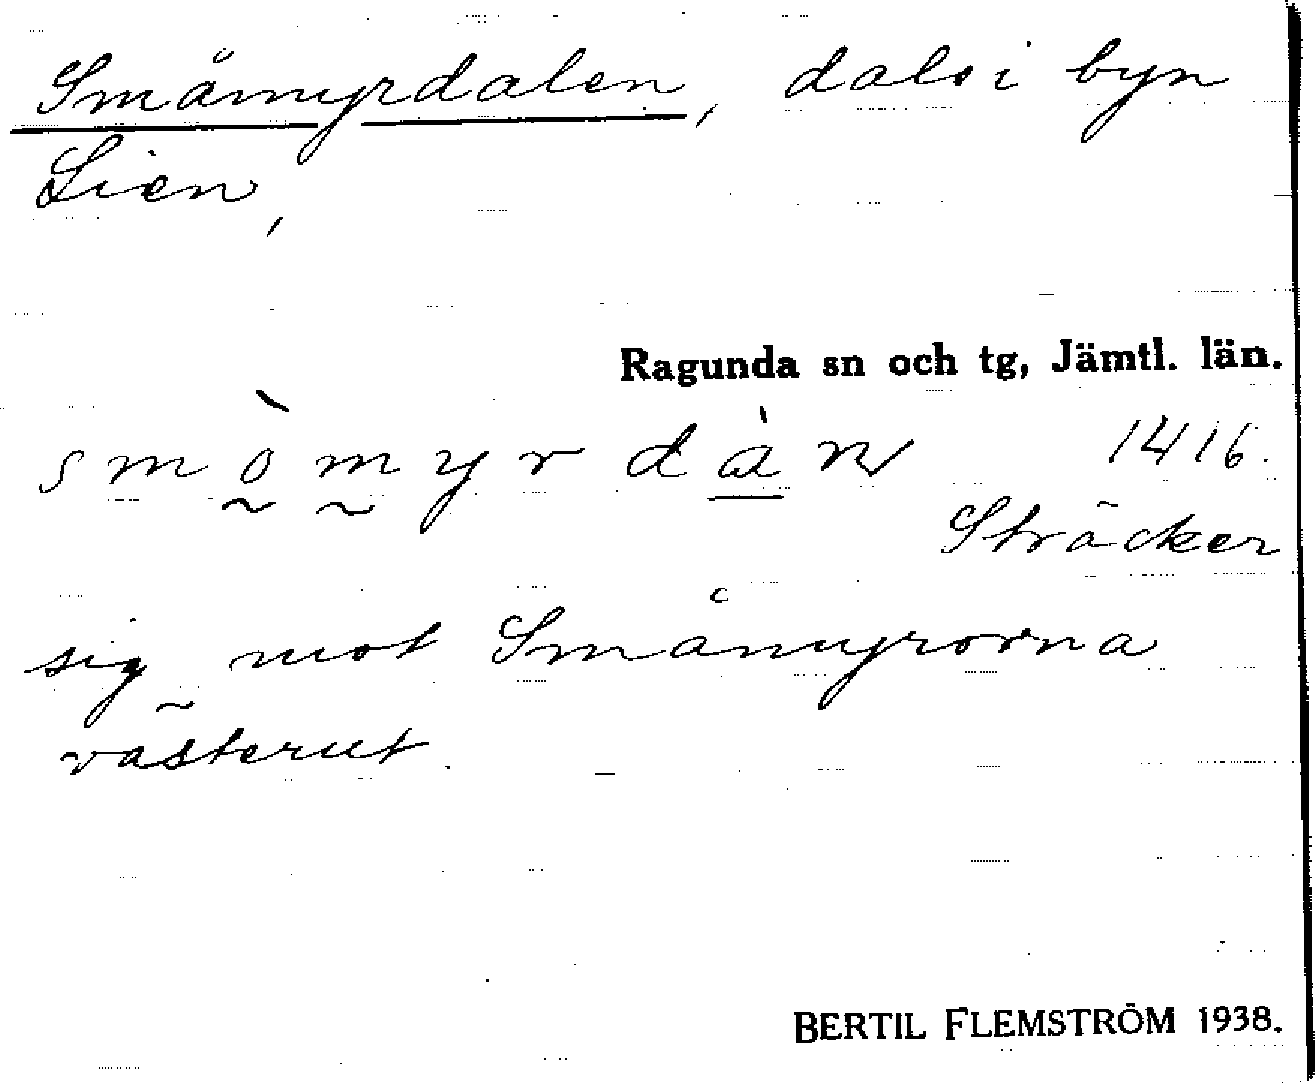 Småmyrdalen, dal i byn
Lien,
Ragunda sn och tg, Jämtl. län.
smò̰m̰yrda̠̍n
1416.
Sträcker
sig mot Småmyrorna
västerut.
BERTIL FLEMSTRÖM 1938.